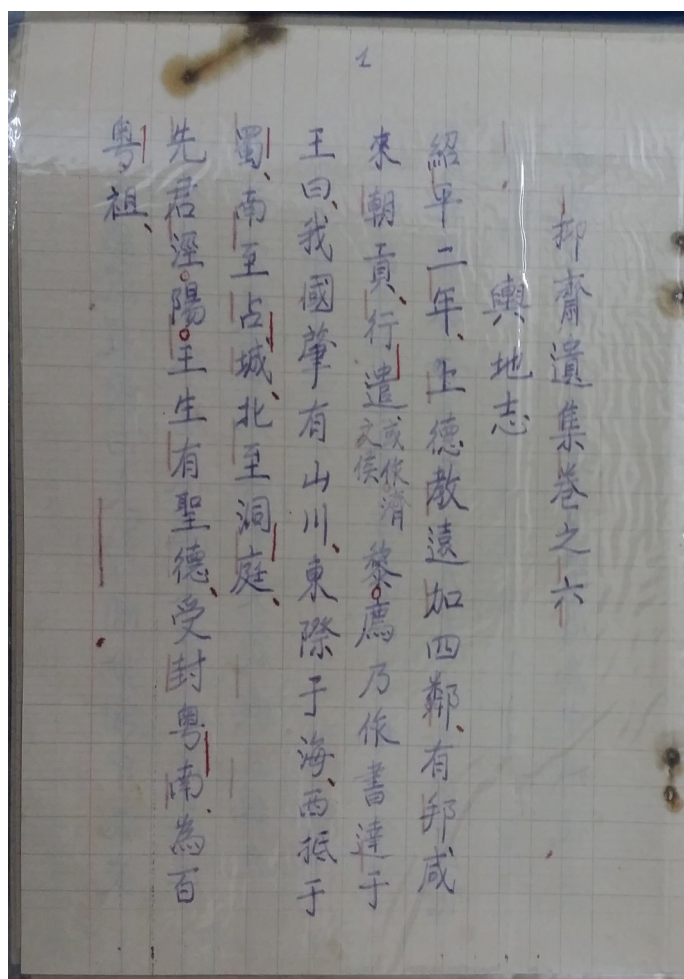 1
抑齋遺集卷之六
輿地志
紹平二年、上德敷遠加四鄰、有邦咸
來朝貢、行遣或作濟文侯黎廌乃作書達于
王曰、我國肇有山川、東際于海、西抵于
蜀、南至占城、北至洞庭、
先君涇陽王生有聖德、受封粵南、為百
粵祖、